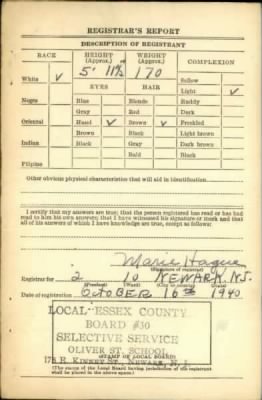 REGISTRAR'S REPORT
DESCRIPTION OF REGISTRANT
RACE HEIGHT (Approx.) WEIGHT (Approx.) COMPLEXION
White ✓ 5' 11½ 170 Sallow
EYES HAIR Light ✓
Negro Blue Blonde Ruddy
Gray Red Dark
Oriental Hazel ✓ Brown ✓ Freckled
Brown Black Light brown
Indian Black Gray Dark brown
Bald Black
Filipino
Other obvious physical characteristics that will aid in identification
I certify that my answers are true; that the person registered has read or has had
read to him his own answers; that I have witnessed his signature or mark and that
all of his answers of which I have knowledge are true, except as follows:
Marie Hague
(Signature of registrar)
Registrar for 2 10 NEWARK. N.J.
(Precinct) (Ward) (City or county) (State)
Date of registration OCTOBER 16th 1940
LOCAL ESSEX COUNTY
BOARD #30
SELECTIVE SERVICE
OLIVER ST. SCHOOL
(STAMP OF LOCAL BOARD)
E. KINNEY ST., NEWARK, N. J.
(The stamp of the Local Board having jurisdiction of the registrant
shall be placed in the above space.)